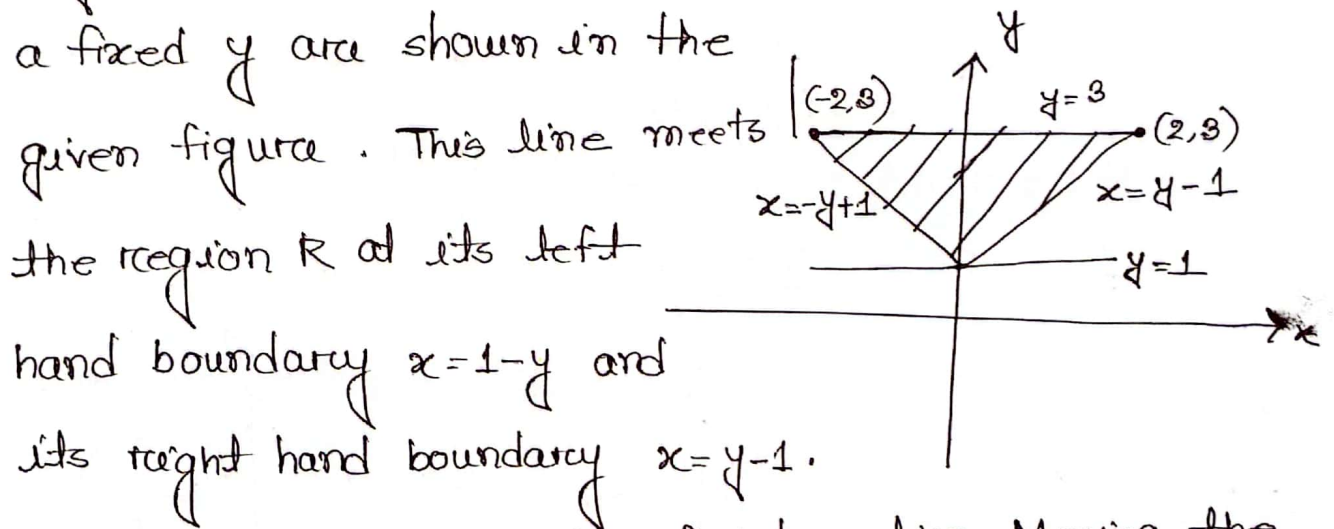 a fixed y are shown in the
given figure. This line meets
the region R at its left
hand boundary x=1-y and
its right hand boundary x=y-1.
y
(-2,3)
y=3
(2,3)
x=-y+1
x=y-1
y=1
x
the